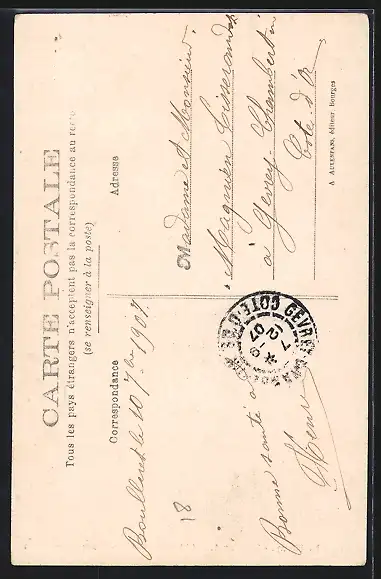 CARTE POSTALE
Tous les pays étrangers n'acceptent pas la correspondance au recto
(se renseigner à la poste)
Correspondance
Adresse
le 10 7bre 1907.
Bonne santé a
Henri
18
Madame et Monsieur
Magnien Tisserandot
à Gevrey-Chambertin
Côte-d'Or
GEVREY CÔTE-D'OR
7
07
A. AUXENFANS, éditeur Bourges